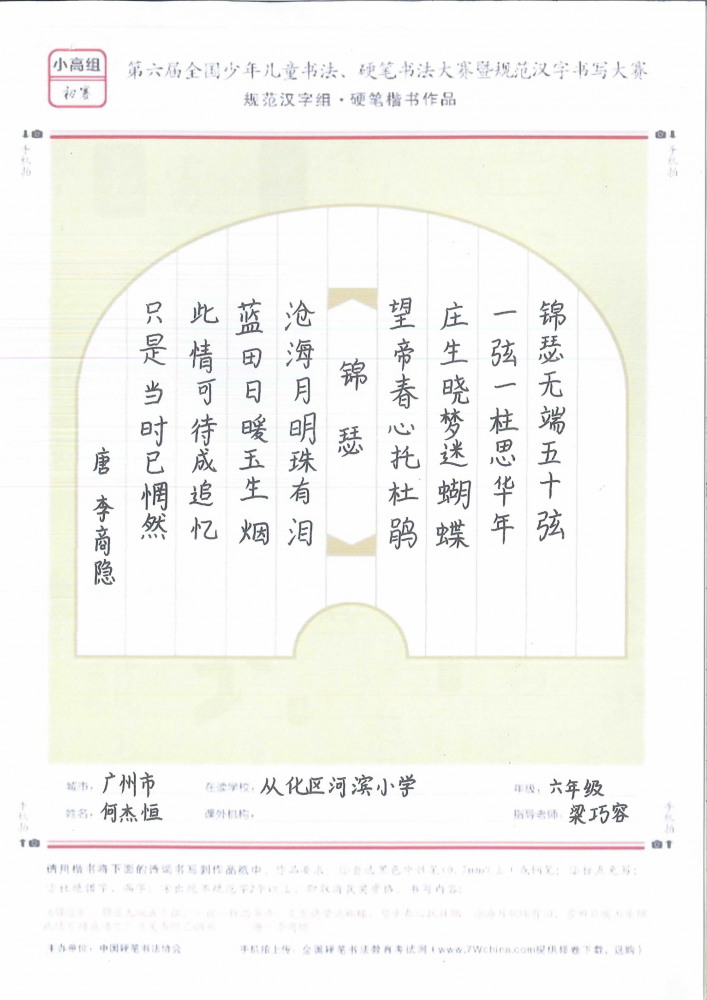 小高组
初赛
第六届全国少年儿童书法、硬笔书法大赛暨规范汉字书写大赛
规范汉字组·硬笔楷书作品
手机拍
手机拍
锦瑟无端五十弦
一弦一柱思华年
庄生晓梦迷蝴蝶
望帝春心托杜鹃
锦瑟
沧海月明珠有泪
蓝田日暖玉生烟
此情可待成追忆
只是当时已惘然
唐 李商隐
城市：广州市 在读学校：从化区河滨小学 年级：六年级
姓名：何杰恒 课外机构： 指导老师：梁巧容
手机拍
手机拍
请用楷书将下面的诗词书写到作品纸中。作品要求：
主办单位：中国硬笔书法协会 手机拍上传：全国硬笔书法教育考试网（www.7Wchina.com提供样卷下载、选购）